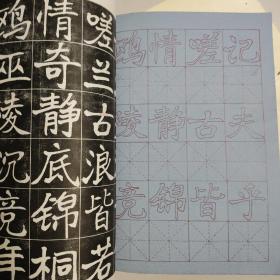 嗟兰古浪皆若
情奇静底锦桐
鸥巫陵沉竞年
记夫乎
嗟古皆
情静锦
鸥陵竞